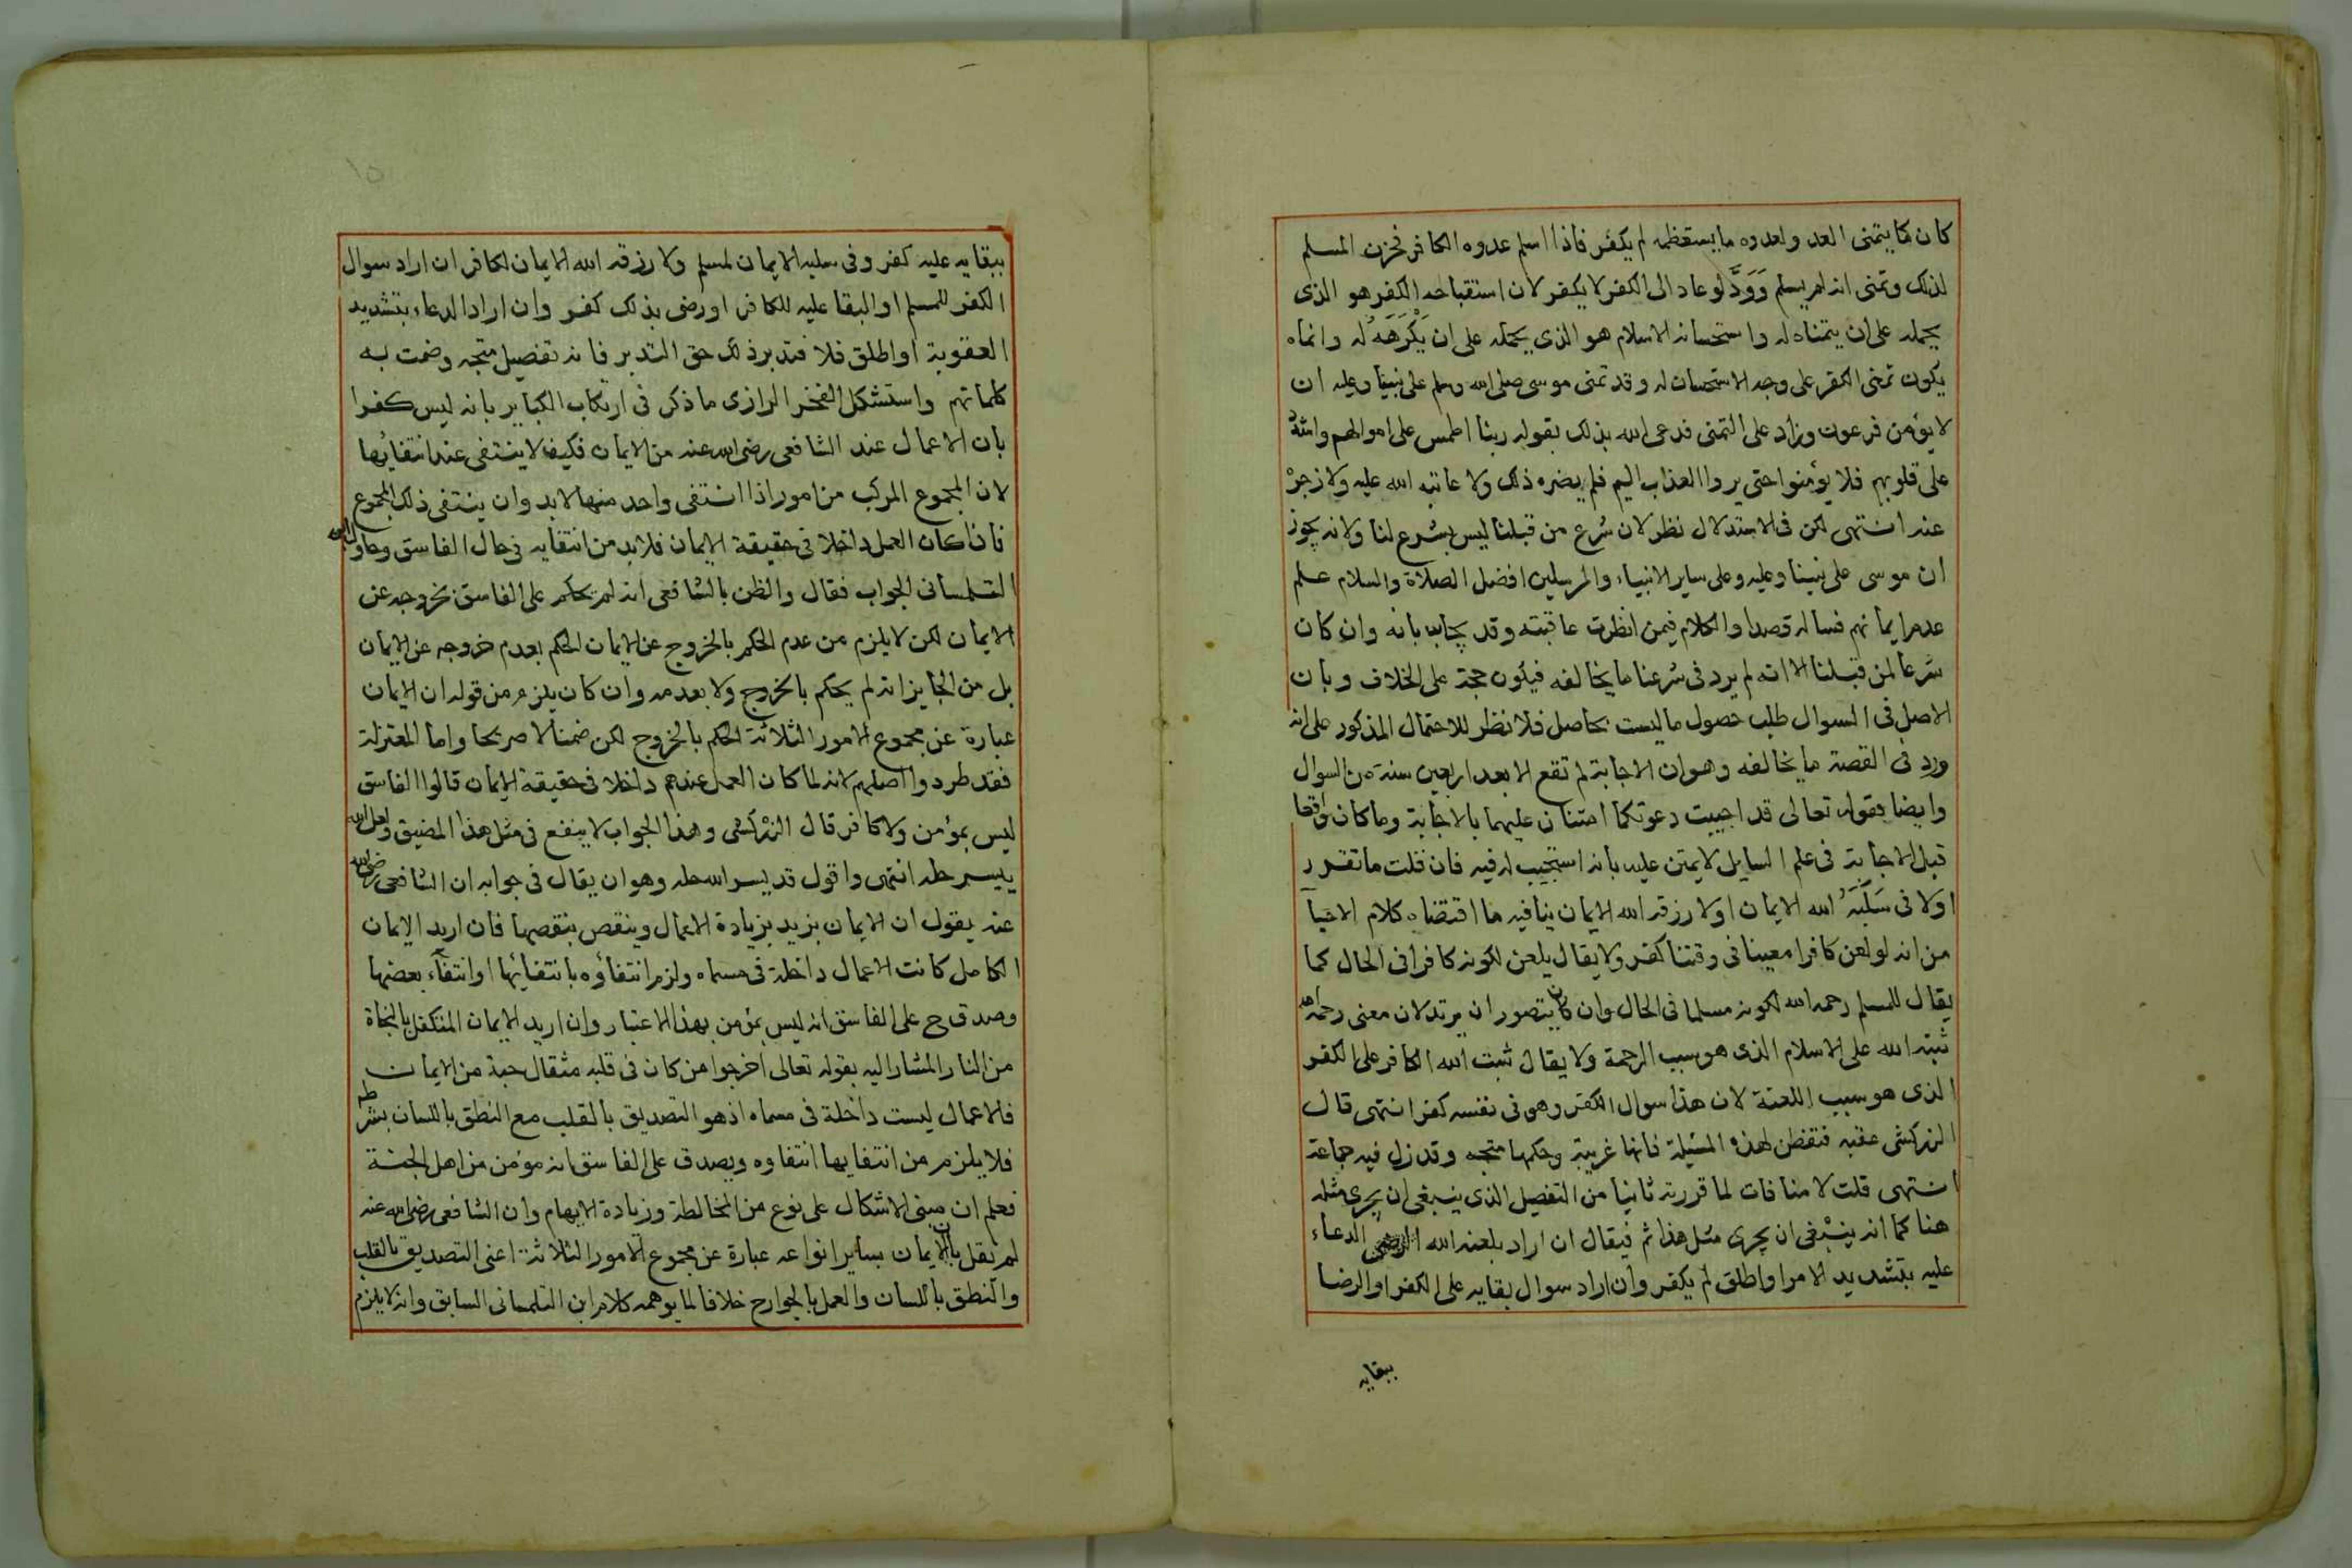 كان كما يتمنى العد ولعدوه ما يستعظمه لم يكفر فاذا اسلم عدوه الكافر فحزن المسلم
لذلك وتمنى انه لم يسلم وَوَدَّ لو عاد الى الكفر لا يكفر لان استقباحه الكفر هو الذى
يحمله على ان يتمناه له واستحسانه الاسلام هو الذى يحمله على ان يَكْرَهَهُ له وانما
يكون تمنى الكفر على وجه الاستحسان له وقد تمنى موسى صلى الله وسلم على نبينا وعليه ان
لا يؤمن فرعون وزاد على التمنى فدعى الله بذلك بقوله ربنا اطمس على اموالهم واشدد
على قلوبهم فلا يؤمنوا حتى يروا العذاب اليم فلم يضره ذلك ولا عاتبه الله عليه ولا زجرْ
عنه انتهى لكن فى الاستدلال نظر لان شرع من قبلنا ليس بشرع لنا ولانه يجوز
ان موسى على نبينا وعليه وعلى ساير الانبياء والمرسلين افضل الصلاة والسلام علم
عدم ايمانهم فساله قصدا والكلام فيمن انظرت عاقبته وقد يجاب بانه وان كان
شرعا لمن قبلنا الا انه لم يرد فى شرعنا ما يخالفه فيكون حجة على الخلاف وبان
الاصل فى السوال طلب حصول ما ليست بحاصل فلا نظر للاحتمال المذكور على انه
ورد فى القصة ما يخالفه وهو ان الاجابة لم تقع الا بعد اربعين سنة من السوال
وايضا فقوله تعالى قد اجيبت دعوتكما امتنان عليهما بالاجابة وما كان واقعا
قبل الاجابة فى علم السايل لا يمتن عليه بانه استجيب له فيه فان قلت ما تقرر
اولا فى سَلَبَهُ الله الايمان او لا رزقه الله الايمان ينافيه ما اقتضاه كلام الاحيآ
من انه لو لعن كافرا معينا فى وقتنا كفر ولا يقال يلعن لكونه كافرا فى الحال كما
يقال للمسلم رحمه الله لكونه مسلما فى الحال وان كان يتصور ان يرتد لان معنى رحمه الله
ثبته الله على الاسلام الذى هو سبب الرحمة ولا يقال ثبت الله الكافر على الكفر
الذى هو سبب اللعنة لان هذا سوال الكفر وهو فى نفسه كفر انتهى قال
الزركشى عقبه فتفطن لهذه المسئلة فانها غريبة وحكمها متجه وقد زل فيه جماعة
انتهى قلت لا منافات لما قررته ثانيا من التفصيل الذى ينبغى ان يجرى مثله
هنا كما انه ينبْغى ان يجرى مثل هذا ثم فيقال ان اراد بلعنه الله الدعاء
عليه بتشديد الامر او اطلق لم يكفر وان اراد سوال بقايه على الكفر او الرضا
ببقايه
ببقايه عليه كفر وفى سلبه الايمان لمسلم ولا رزقه الله الايمان لكافر ان اراد سوال
الكفر للمسلم او البقا عليه للكافر او رضى بذلك كفر وان اراد الدعاء بتشديد
العقوبة او اطلق فلا فتدبر ذلك حق التدبر فانه تفصيل متجه وضمت به
كلماتهم واستشكل الفخر الرازى ما ذكر فى ارتكاب الكباير بانه ليس كفرا
بان الاعمال عند الشافعى رضى الله عنه من الايمان فكيف لا ينتفى عند انتفايها
لان المجموع المركب من امور اذا انتفى واحد منها لا بد وان ينتفى ذلك المجموع
فان كان العمل داخلا فى حقيقة الايمان فلا بد من انتفايه فى حال الفاسق وحاول ابن
التلمسانى الجواب فقال والظن بالشافعى انه لم يحكم على الفاسق بخروجه عن
الايمان لكن لا يلزم من عدم الحكم بالخروج عن الايمان الحكم بعدم خروجه عن الايمان
بل من الجايز انه لم يحكم بالخروج ولا بعدمه وان كان يلزم من قوله ان الايمان
عبارة عن مجموع الامور الثلاثة الحكم بالخروج لكن ضمنا لا صريحا واما المعتزلة
فقد طردوا اصلهم لانه لما كان العمل عندهم داخلا فى حقيقة الايمان قالوا الفاسق
ليس بمؤمن ولا كافر قال الزركشى وهذا الجواب لا ينفع فى مثل هذا المضيق ولعل الله
ييسر حله انتهى واقول قد يسر الله حله وهو ان يقال فى جوابه ان الشافعى رضى الله
عنه يقول ان الايمان يزيد بزيادة الاعمال وينقص بنقصها فان اريد الايمان
الكامل كانت الاعمال داخلة فى مسماه ولزم انتفاؤه بانتفائها او انتفآء بعضها
وصدق ح على الفاسق انه ليس بمؤمن بهذا الاعتبار وان اريد الايمان المتكفل بالنجاة
من النار المشار اليه بقوله تعالى اخرجوا من كان فى قلبه مثقال حبة من الايمان
فالاعمال ليست داخلة فى مسماه اذ هو التصديق بالقلب مع النطق باللسان بشرطه
فلا يلزم من انتفايها انتفاوه ويصدق على الفاسق انه مؤمن من اهل الجنة
فعلم ان مبنى الاشكال على نوع من المخالطة وزيادة الابهام وان الشافعى رضى الله عنه
لم يقل بان الايمان بساير انواعه عبارة عن مجموع الامور الثلاثة اعنى التصديق بالقلب
والنطق باللسان والعمل بالجوارح خلافا لما يوهمه كلام ابن التلمسانى السابق وانه لا يلزم